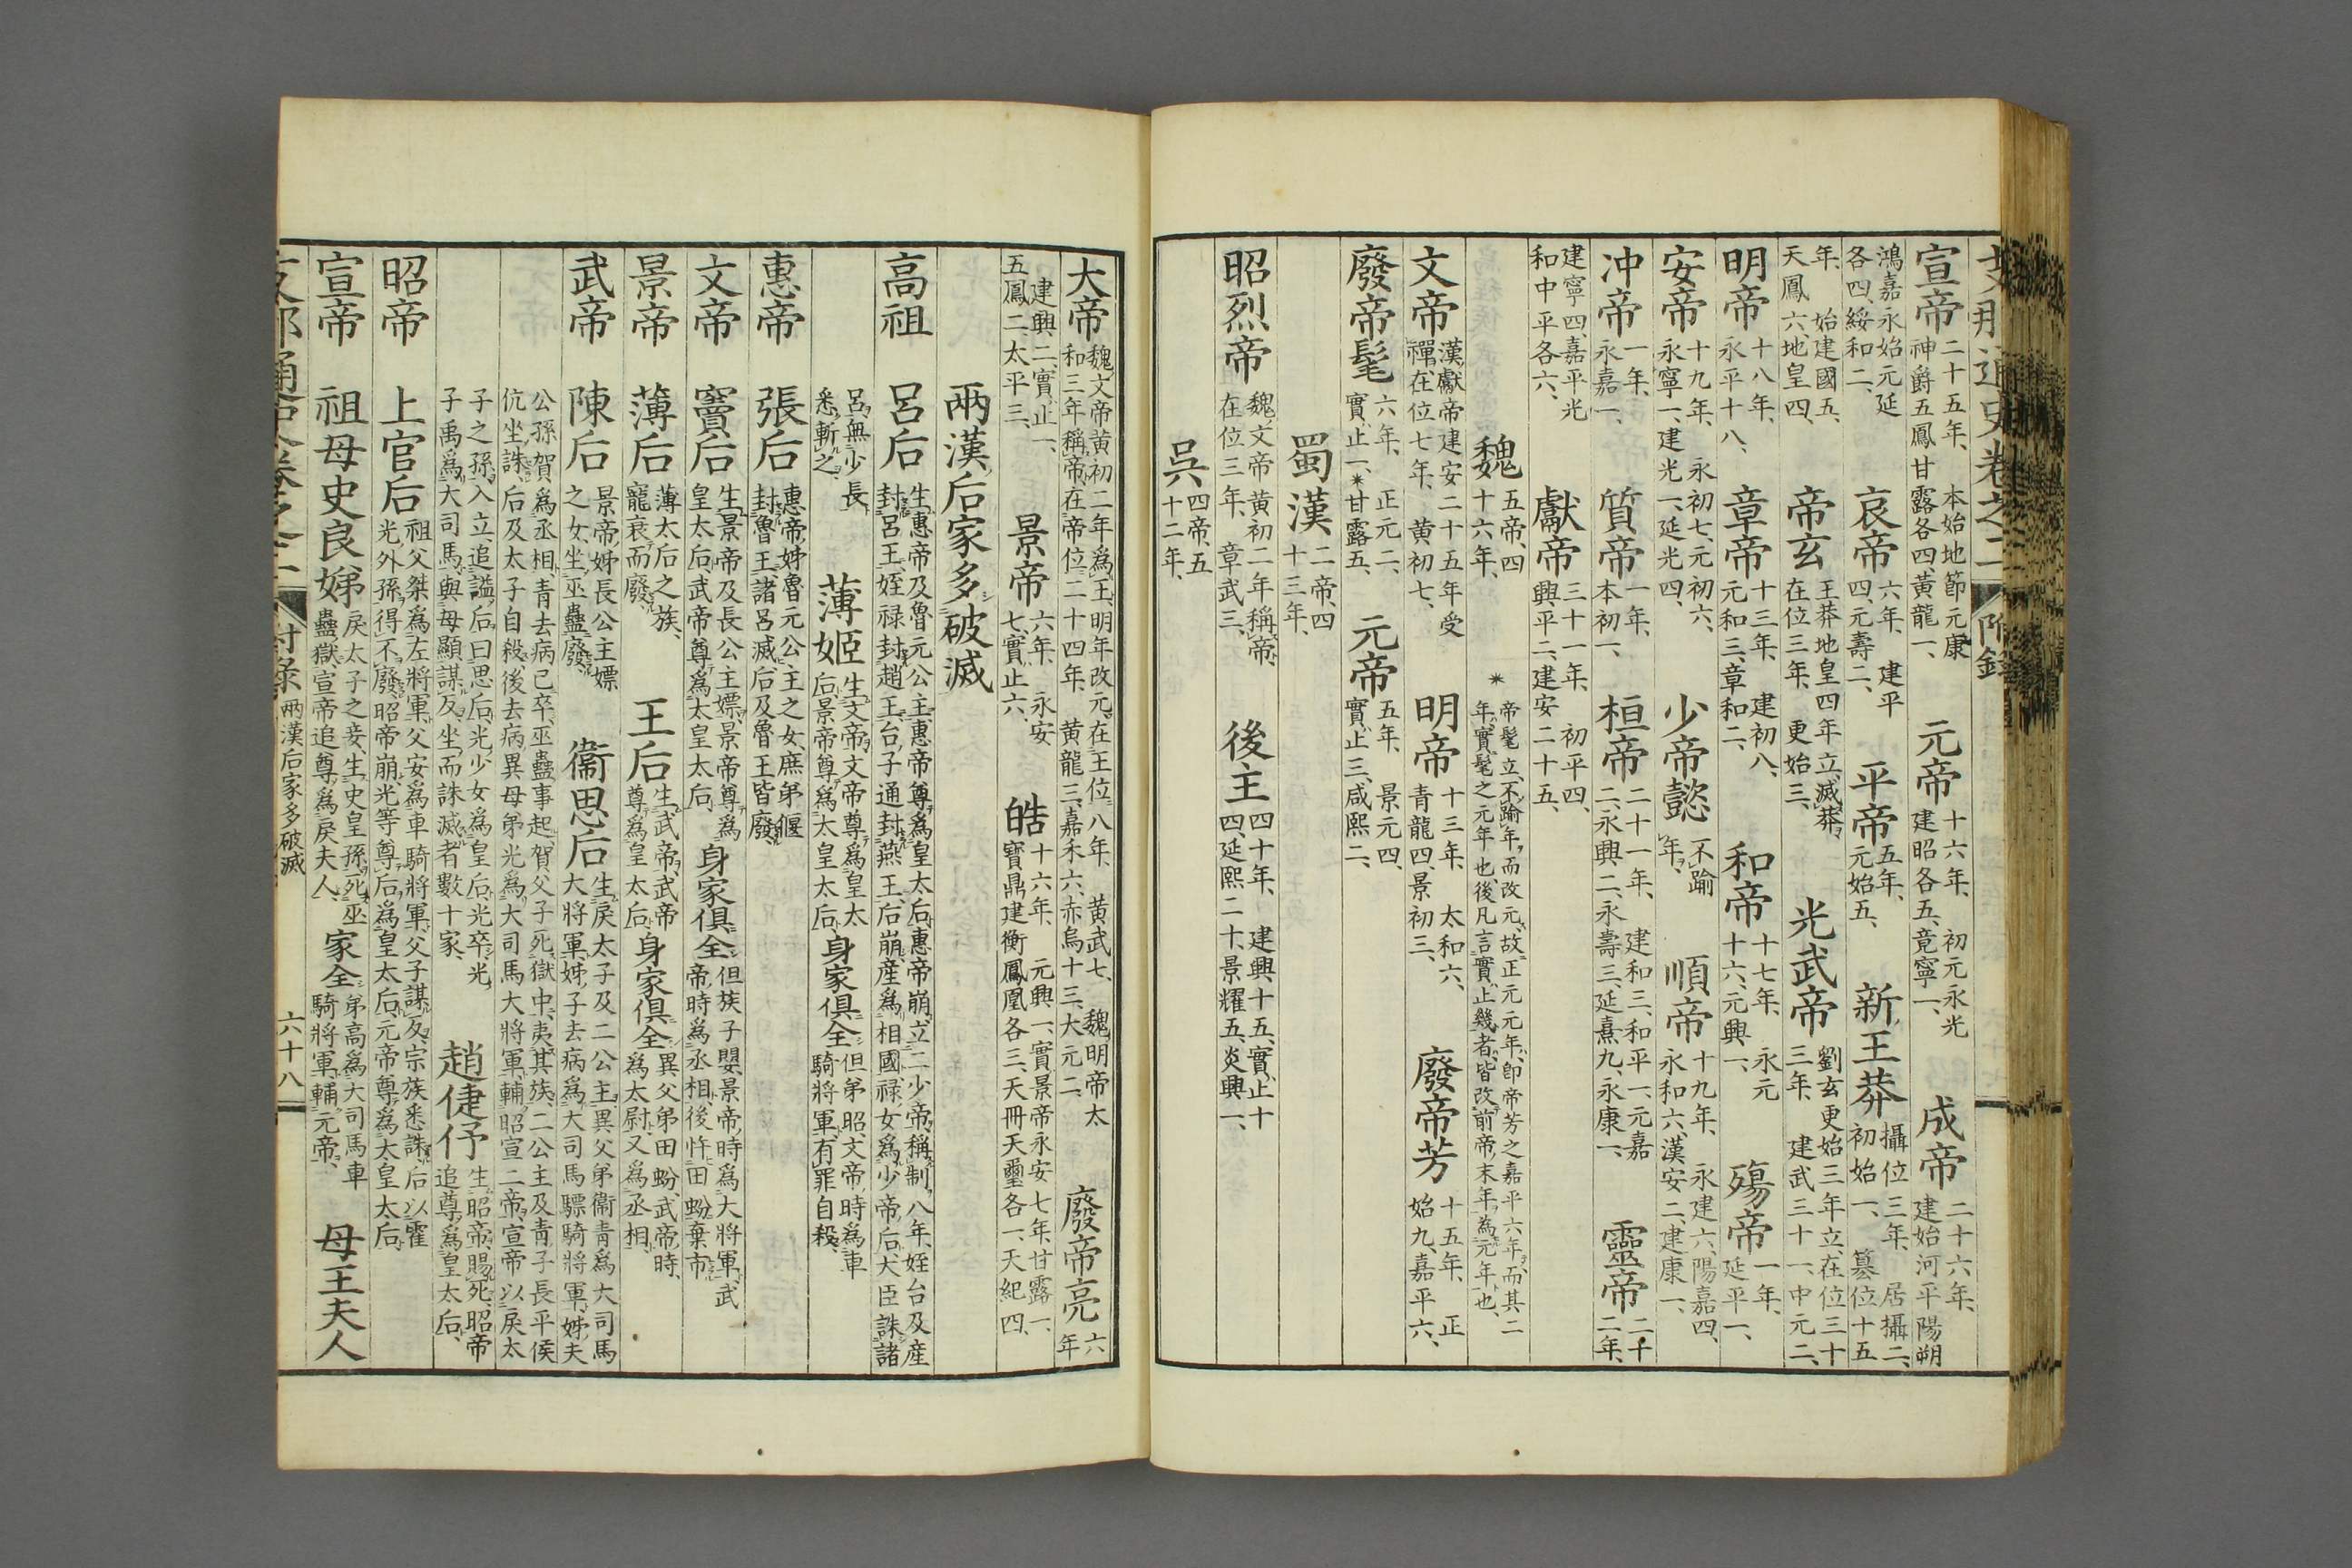 支那通史卷之二 附錄
宣帝 二十五年、本始地節元康神爵五鳳甘露各四、黃龍一、 元帝 十六年、初元永光建昭各五、竟寧一、 成帝 二十六年、建始河平陽朔
鴻嘉永始元延各四、綏和二、 哀帝 六年、建平四、元壽二、 平帝 五年、元始五、 新王莽 攝位三年、居攝二、初始一、篡位十五
年、始建國五、天鳳六、地皇四、 帝玄 王莽地皇四年立、滅莽、在位三年、更始三、 光武帝 劉玄更始三年立、在位三十三年、建武三十一、中元二、
明帝 十八年、永平十八、 章帝 十三年、建初八、元和三、章和二、 和帝 十七年、永元十六、元興一、 殤帝 一年、延平一、
安帝 十九年、永初七、元初六、永寧一、建光一、延光四、 少帝懿 不踰年、 順帝 十九年、永建六、陽嘉四、永和六、漢安二、建康一、
冲帝 一年、永嘉一、 質帝 一年、本初一、 桓帝 二十一年、建和三、和平一、元嘉二、永興二、永壽三、延熹九、永康一、 靈帝 二十二年、
建寧四、嘉平光和中平各六、 獻帝 三十一年、初平四、興平二、建安二十五、
魏 五帝、四十六年、 *帝髦立、不踰年、而改元、故正元元年、卽帝芳之嘉平六年、而其二年、實髦之元年也、後凡言實止幾者、皆改前帝末年、為元年也、
文帝 漢獻帝建安二十五年受禪、在位七年、黃初七、 明帝 十三年、太和六、青龍四、景初三、 廢帝芳 十五年、正始九、嘉平六、
廢帝髦 六年、正元二、實止一、*甘露五、 元帝 五年、景元四、實止三、咸熙二、
蜀漢 二帝、四十三年、
昭烈帝 魏文帝黃初二年稱帝、在位三年、章武三、 後主 四十年、建興十五、實止十四、延熙二十、景耀五、炎興一、
吳 四帝、五十二年、
大帝 魏文帝黃初二年為王、明年改元、在王位八年、黃武七、魏明帝太和三年稱帝、在帝位二十四年、黃龍三、嘉禾六、赤烏十三、大元二、 廢帝亮 六年
建興二、實止一、五鳳二、太平三、 景帝 六年、永安七、實止六、 皓 十六年、元興一、實景帝永安七年、甘露一、寶鼎建衡鳳凰各三、天冊天璽各一、天紀四、
兩漢后家多破滅
高祖 呂后 生惠帝及魯元公主、惠帝尊為皇太后、惠帝崩、立二少帝、稱制八年、姪台及產封呂王、姪祿封趙王、台子通封燕王、后崩、產為相國、祿女為少帝后、大臣誅諸
呂、無少長悉斬之、 薄姬 生文帝、文帝尊為皇太后、景帝尊為太皇太后、 身家俱全 但弟昭、文帝時為車騎將軍、有罪自殺、
惠帝 張后 惠帝姊魯元公主之女、庶弟偃封魯王、諸呂滅、后及魯王皆廢、
文帝 竇后 生景帝及長公主嫖、景帝尊為皇太后、武帝尊為太皇太后、 身家俱全 但族子嬰、景帝時為大將軍、武帝時為丞相、後忤田蚡棄市、
景帝 薄后 薄太后之族、寵衰而廢、 王后 生武帝、武帝尊為皇太后、 身家俱全 異父弟田蚡、武帝時、為太尉、又為丞相、
武帝 陳后 景帝姊長公主嫖之女、坐巫蠱廢、 衞思后 生戾太子及二公主、異父弟衞青為大司馬大將軍、姊子去病為大司馬驃騎將軍、姊夫
公孫賀為丞相、青去病已卒、巫蠱事起、賀父子死獄中、夷其族、二公主及青子長平侯伉坐誅、后及太子自殺、後去病異母弟光為大司馬大將軍、輔昭宣二帝、宣帝以戾太
子之孫入立、追謚后曰思后、光少女為皇后、光卒、光子禹為大司馬、與母顯謀反、坐而誅滅者數十家、 趙倢伃 生昭帝、賜死、昭帝追尊為皇太后、
昭帝 上官后 祖父桀為左將軍、父安為車騎將軍、父子謀反、宗族悉誅、后以霍光外孫得不廢、昭帝崩、光等尊后為皇太后、元帝尊為太皇太后、
宣帝 祖母史良娣 戾太子之妾、生史皇孫、死巫蠱獄、宣帝追尊為戾夫人、 家全 弟高為大司馬車騎將軍、輔元帝、 母王夫人
支那通史卷之二 附錄 兩漢后家多破滅 六十八